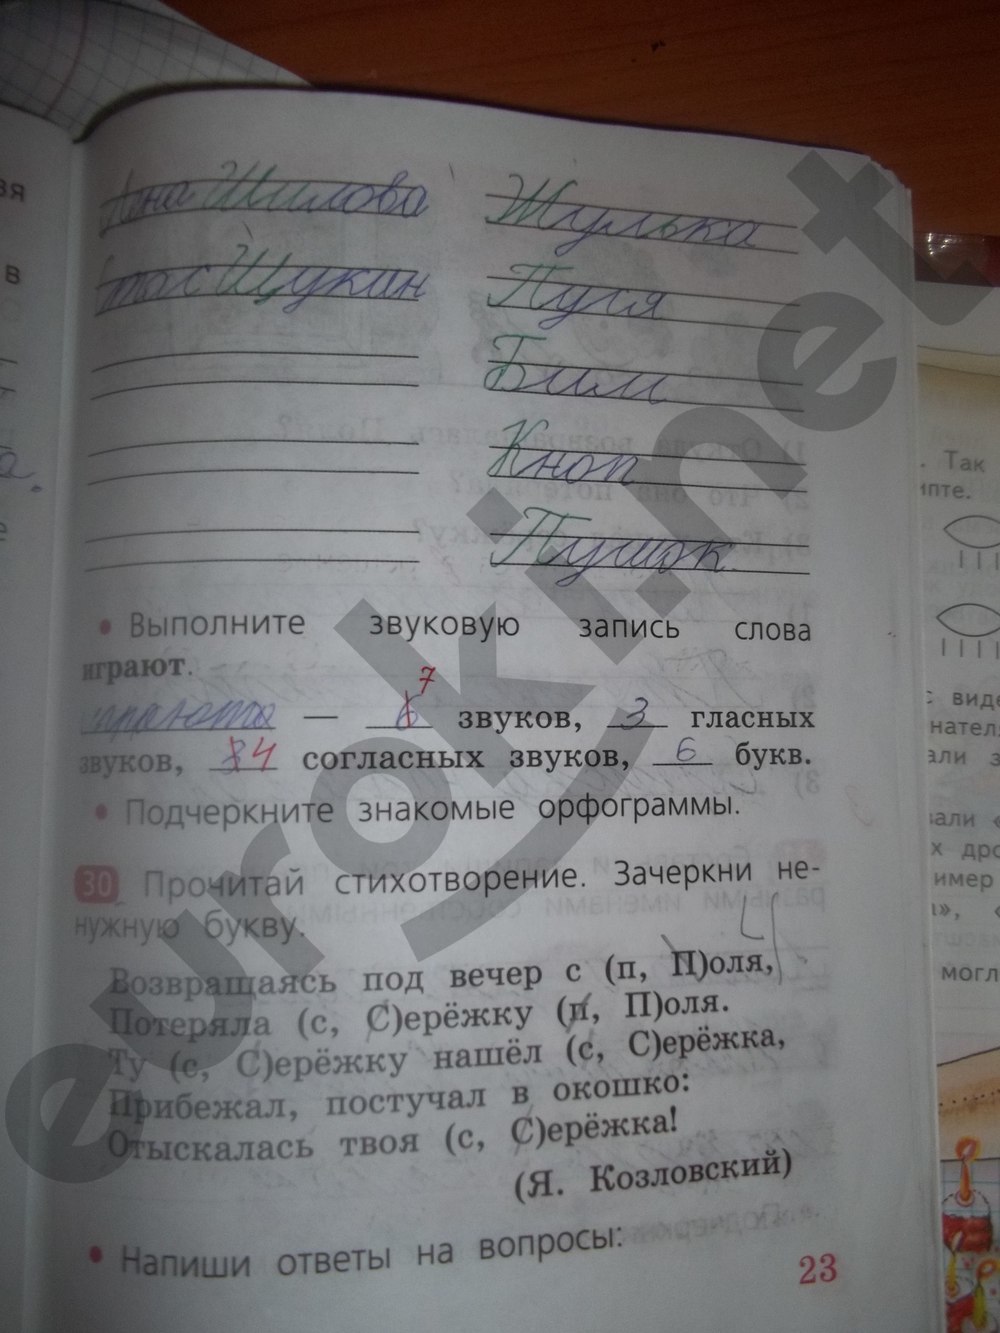 Шилова Жулька
Щукин Пуся
Бим
Кноп
Пушок
• Выполните звуковую запись слова
играют.
— 6 7 звуков, 3 гласных
звуков, 3 4 согласных звуков, 6 букв.
• Подчеркните знакомые орфограммы.
30 Прочитай стихотворение. Зачеркни не-
нужную букву.
Возвращаясь под вечер с (п, П)оля,
Потеряла (с, С)ерёжку (п, П)оля.
Ту (с, С)ерёжку нашёл (с, С)ерёжка,
Прибежал, постучал в окошко:
Отыскалась твоя (с, С)ерёжка!
(Я. Козловский)
• Напиши ответы на вопросы:
23
вя
в
а.
е
. Так
ипте.
вали
могл
euroki.net